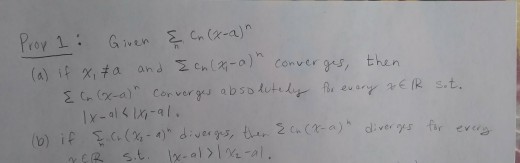 Prop 1: Given Σ_n Cₙ(x-a)ⁿ
(a) if x₁ ≠ a and Σ Cₙ(x₁-a)ⁿ converges, then
Σ Cₙ(x-a)ⁿ converges absolutely for every x ∈ ℝ s.t.
|x-a| < |x₁-a|.
(b) if Σ_n Cₙ(x₂-a)ⁿ diverges, then Σ Cₙ(x-a)ⁿ diverges for every
x ∈ ℝ s.t. |x-a| > |x₂-a|.